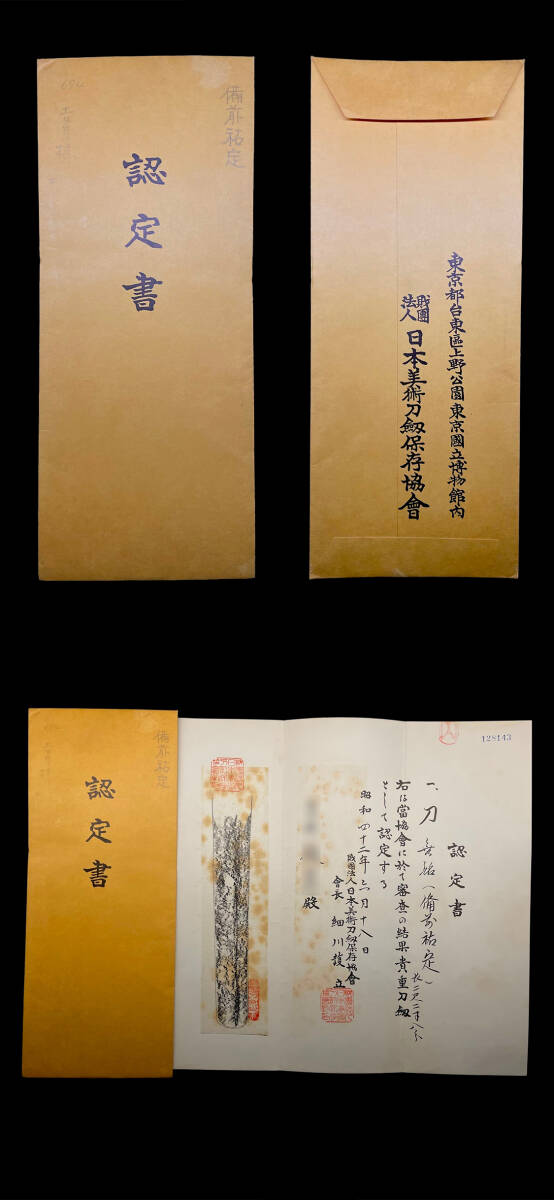 備前祐定
認定書
東京都台東區上野公園東京國立博物館内
財團法人 日本美術刀劔保存協會
備前祐定
認定書
128143
認定書
一、刀 無銘(備前祐定) 長二尺二寸八分
右は當協會に於て審査の結果貴重刀劔
として認定する
昭和四十二年六月十八日
財團法人日本美術刀劔保存協會
會長 細川護立
殿